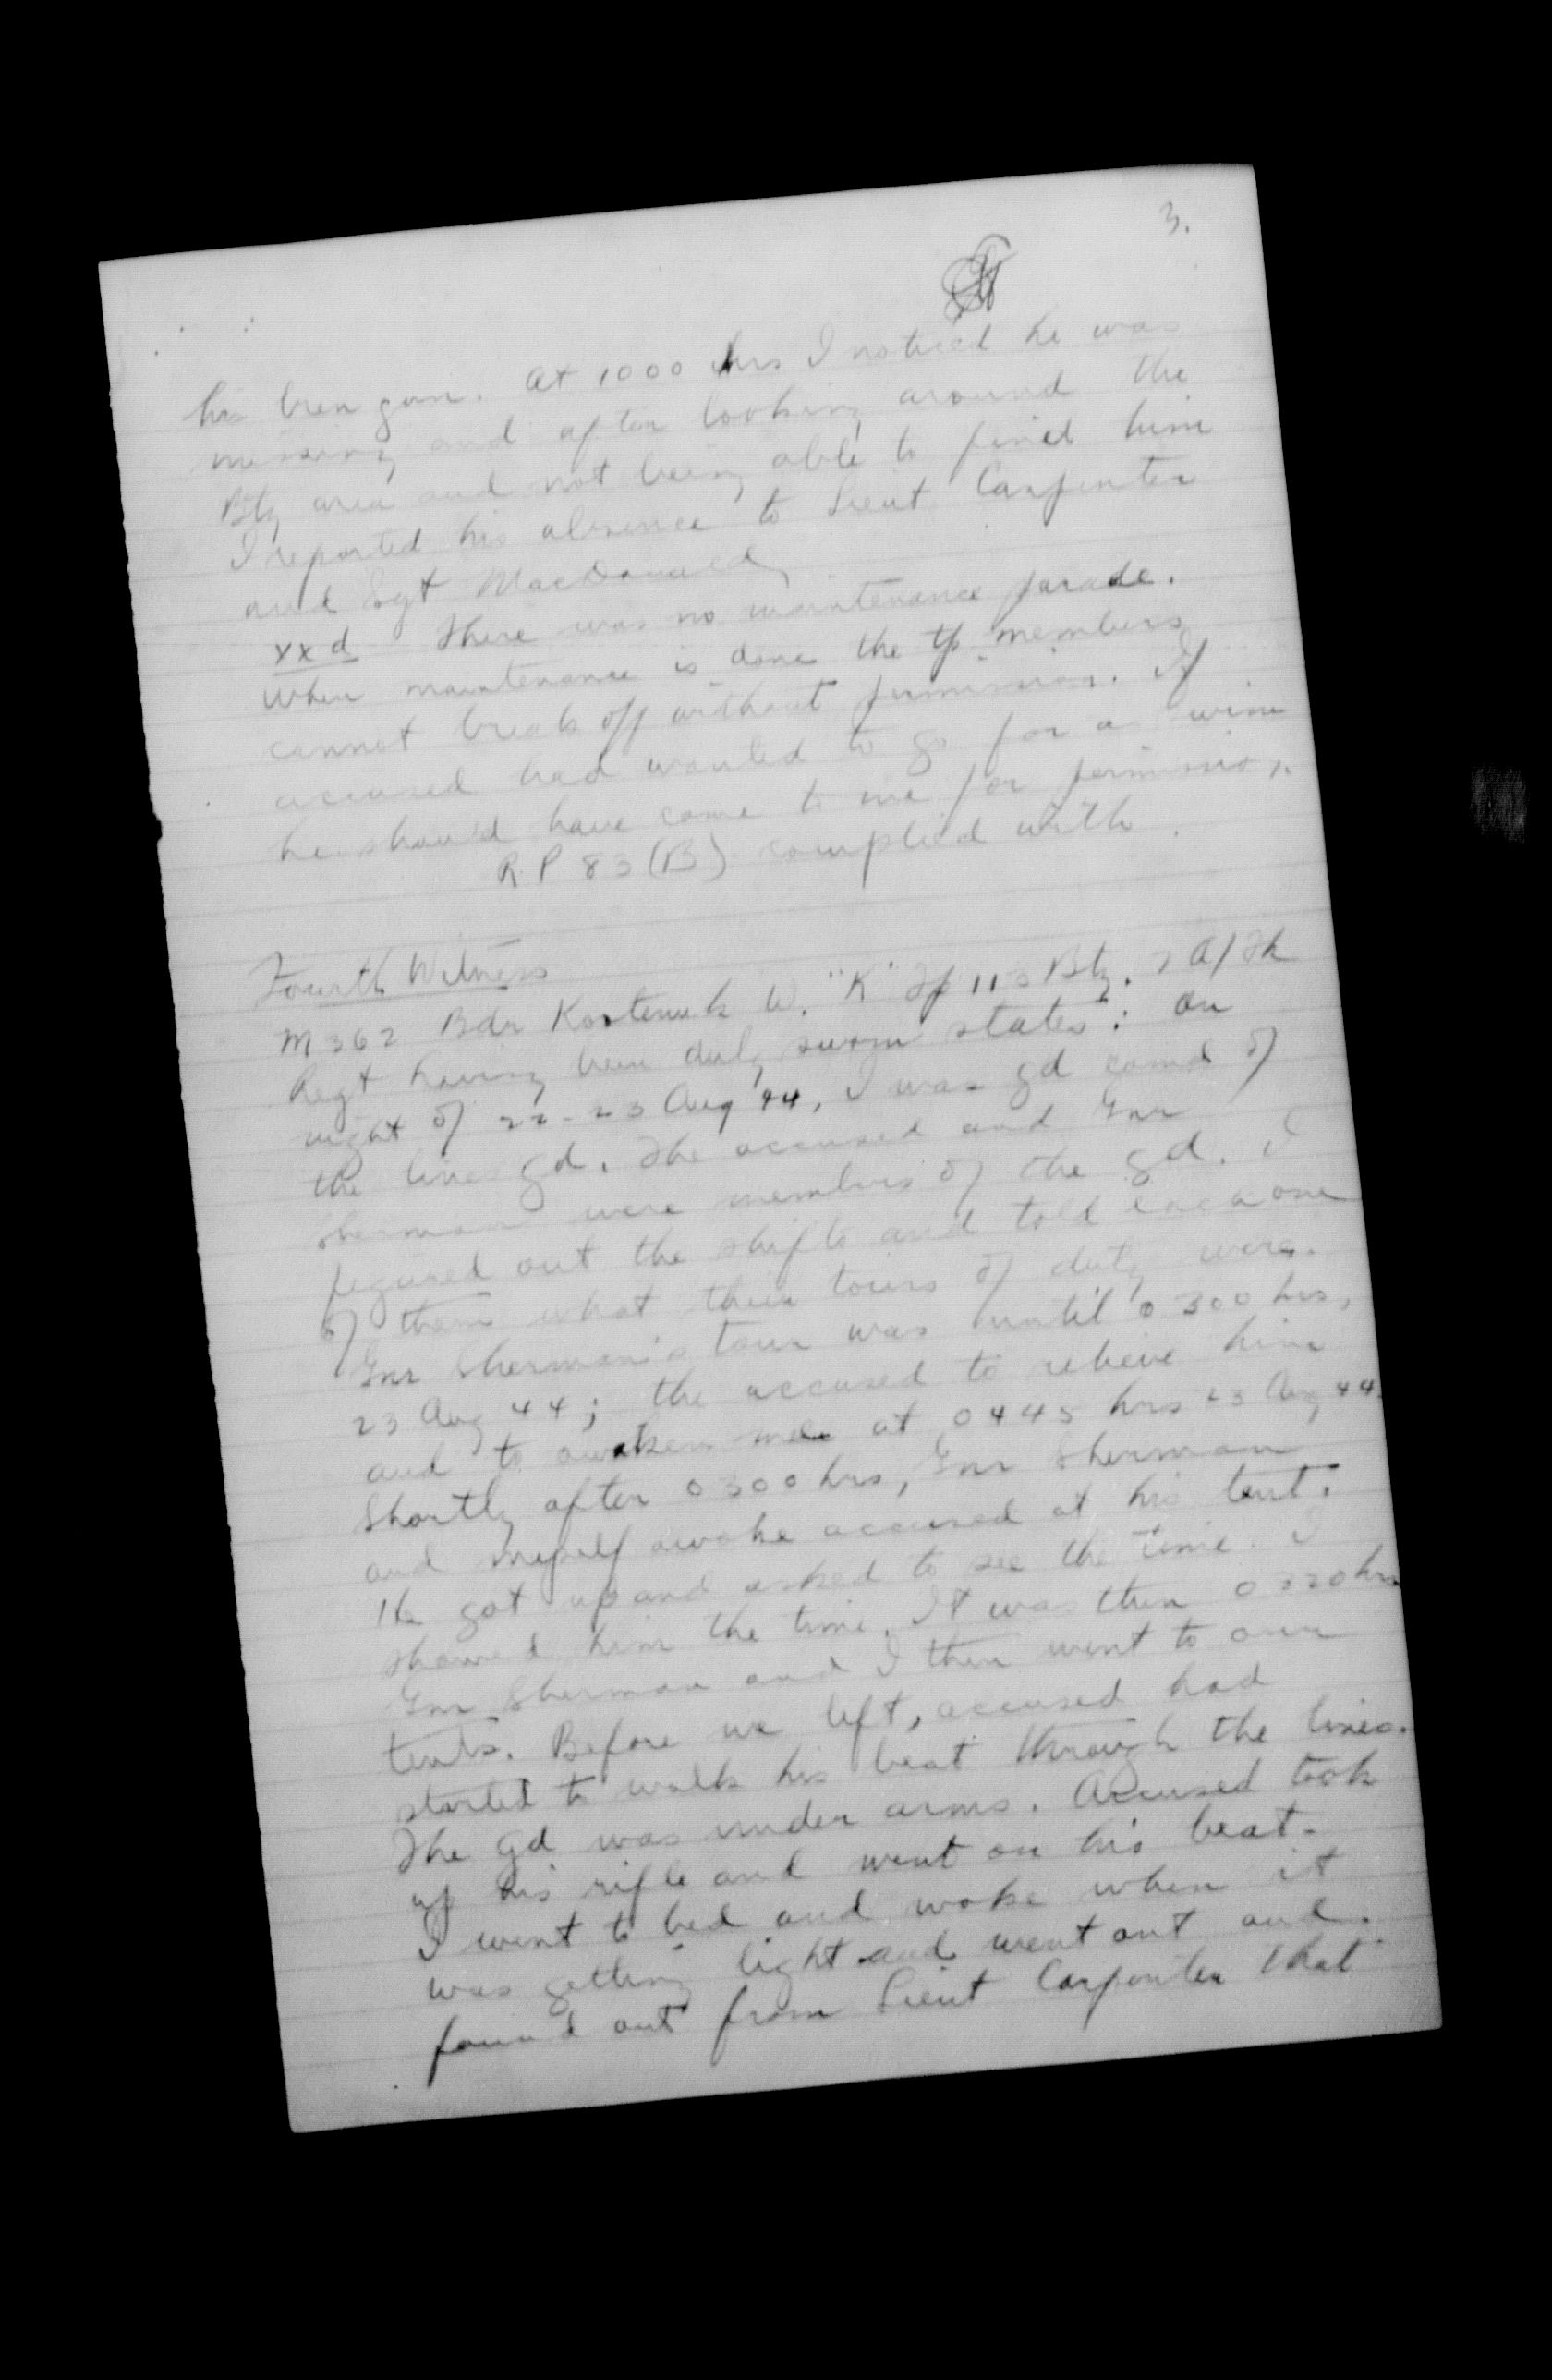 3.
his bren gun. At 1000 hrs I noticed he was
missing and after looking around the
Bty area and not being able to find him
I reported his absence to Lieut Carpenter
and Sgt MacDonald
xxd There was no maintenance parade.
When maintenance is done the tp members
cannot break off without permission. If
accused had wanted to go for a swim
he should have come to me for permission.
R P 83 (B) complied with.
Fourth Witness
M 362 Bdr W. "K" Tp 113 Bty. 7 A/Tk
Regt having been duly sworn states: On
night of 22-23 Aug 44, I was gd comd of
the lines gd. The accused and Gnr
Sherman were members of the gd. I
figured out the shifts and told each one
of them what their tours of duty were.
Gnr Sherman's tour was until 0300 hrs,
23 Aug 44; the accused to relieve him
and to awaken me at 0445 hrs 23 Aug 44.
Shortly after 0300 hrs, Gnr Sherman
and myself awoke accused at his tent.
He got up and asked to see the time. I
showed him the time. It was then hrs
Gnr Sherman and I then went to our
tents. Before we left, accused had
started to walk his beat through the lines.
The gd was under arms. Accused took
up his rifle and went on his beat.
I went to bed and woke when it
was getting light and went out and
found out from Lieut Carpenter that